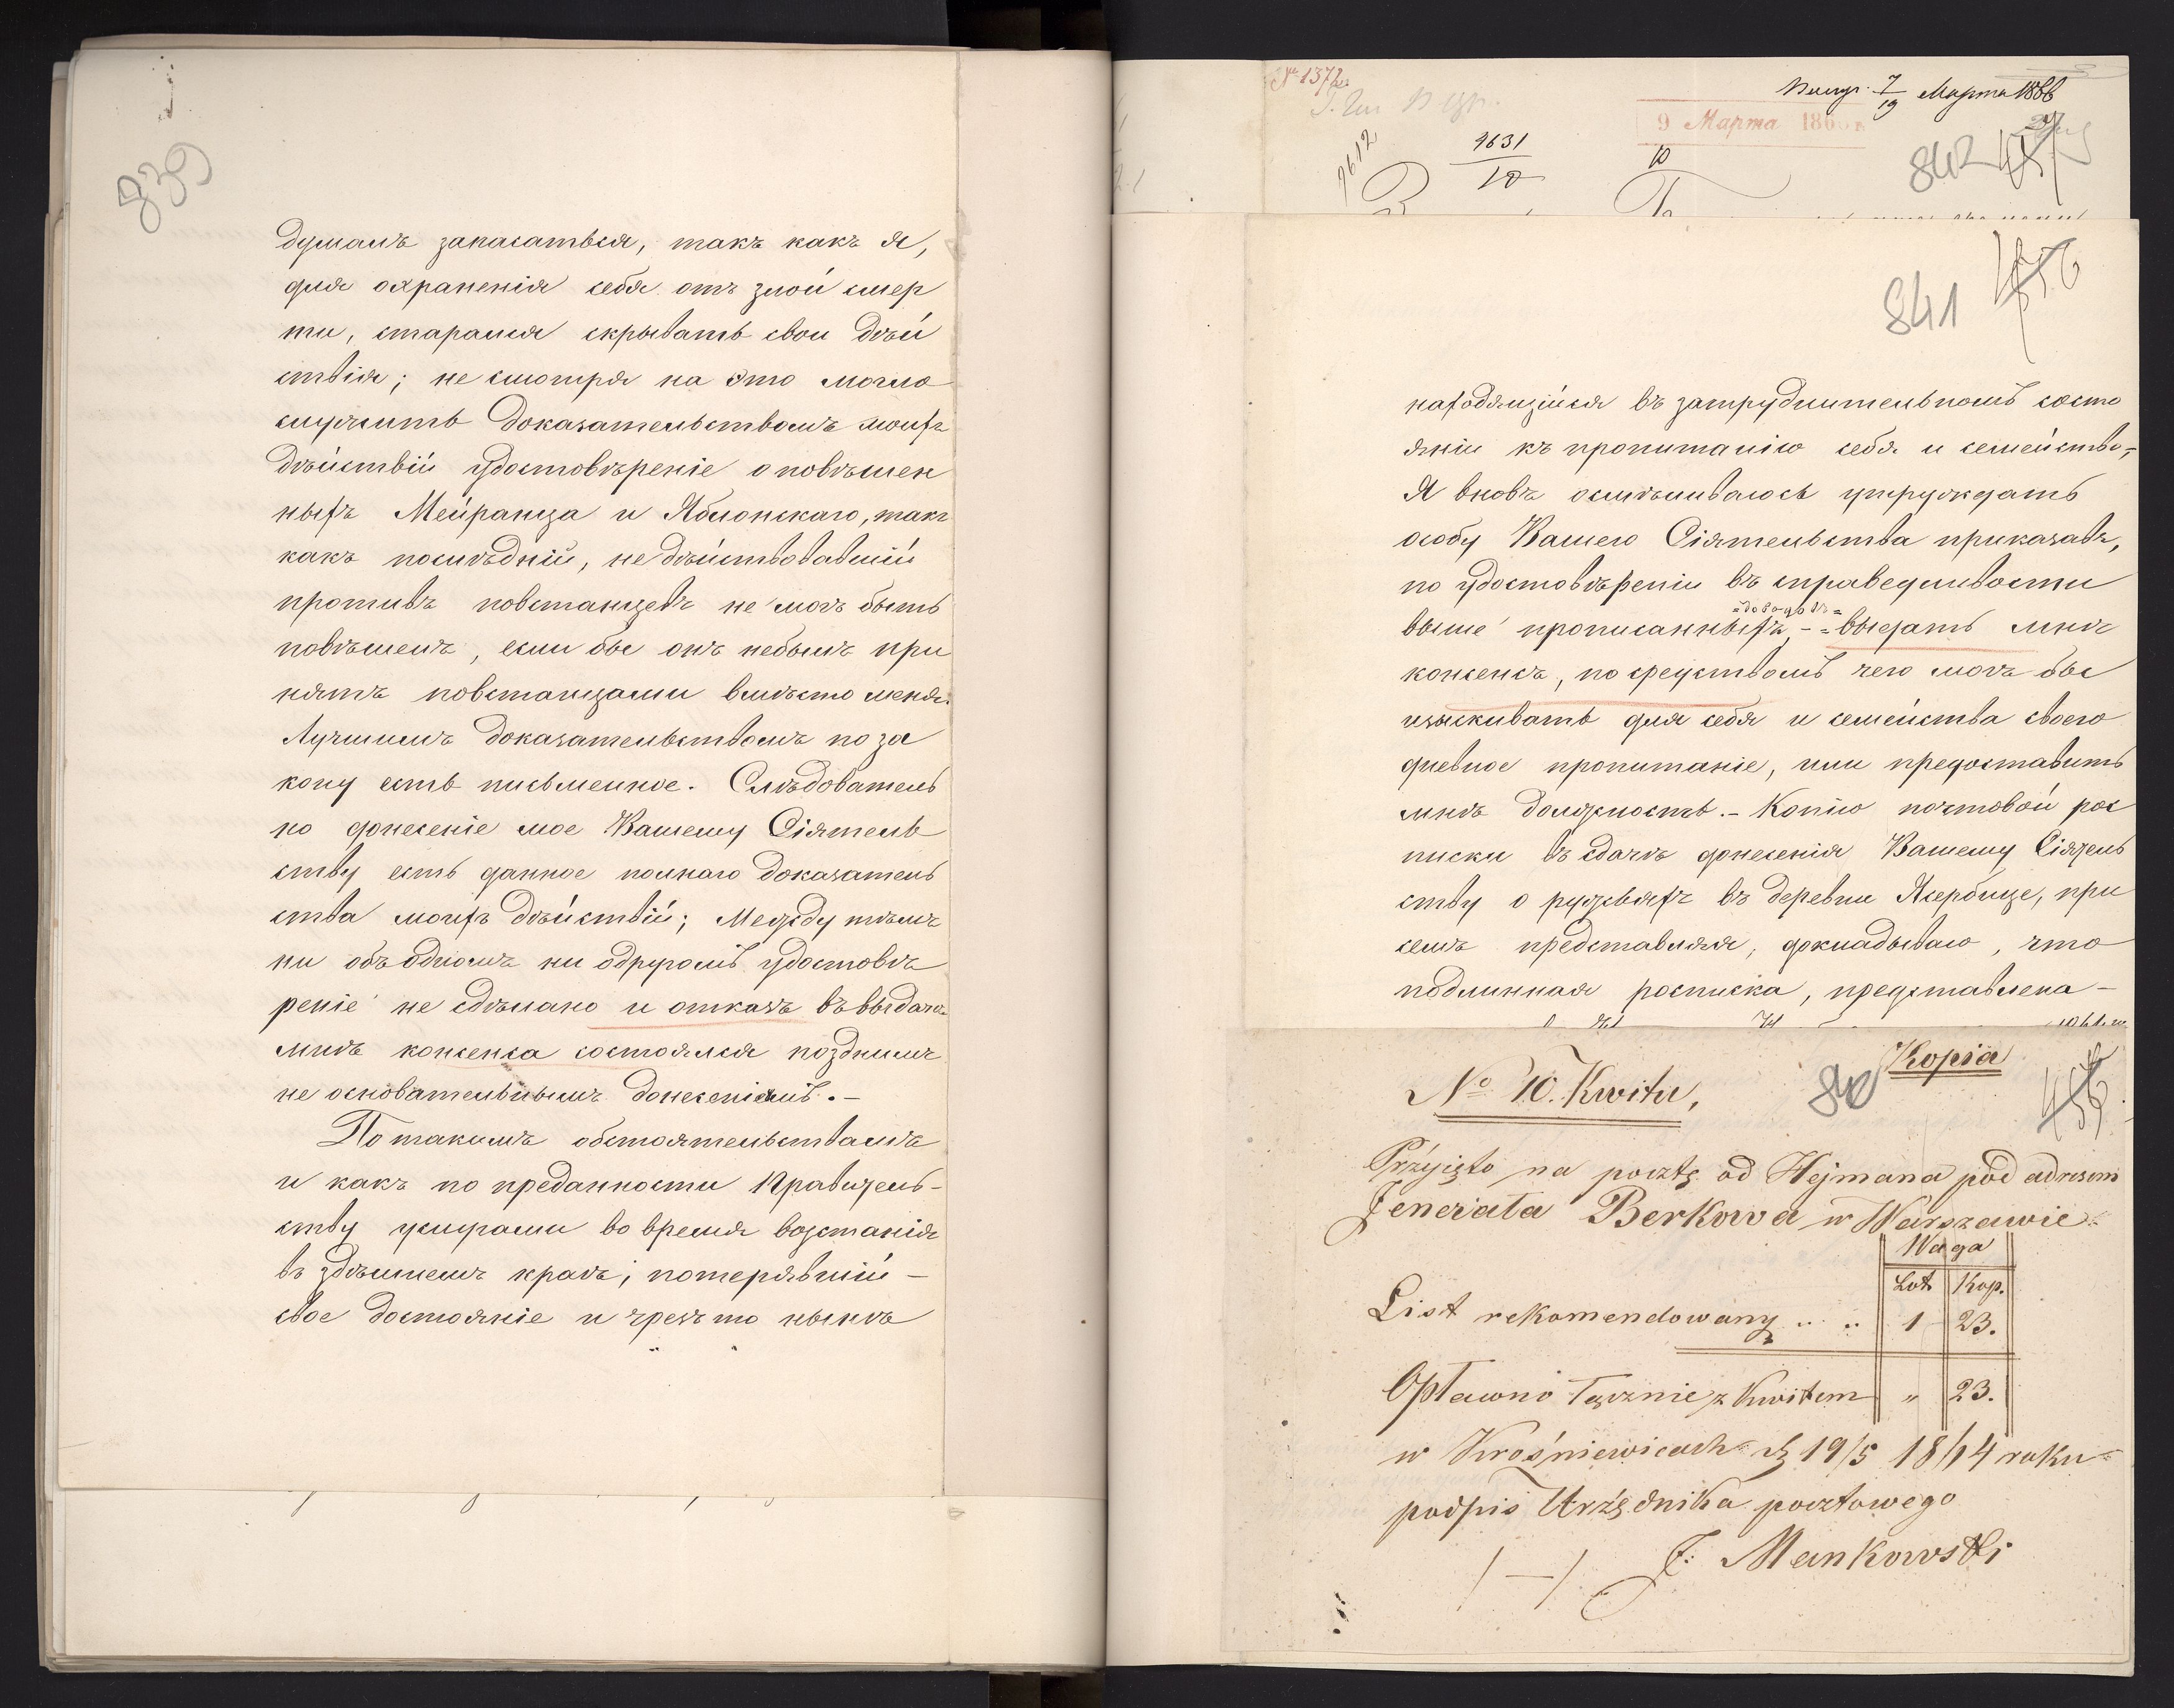 839
думалъ запасаться, такъ какъ я,
для охраненія себя отъ злой смер
ти, старался скрывать свои дѣй
ствія; не смотря на это могло
служить доказательствомъ моихъ
дѣйствій удостовѣреніе о повѣшен
ныхъ Мейранца и Яблонскаго, такъ
какъ послѣдній, не дѣйствовавшій
противъ повстанцевъ не могъ быть
повѣшенъ, если бы онъ небылъ при
нятъ повстанцами вмѣсто меня.
Лучшимъ доказательствомъ по за
кону есть письменное. Слѣдователь
но донесеніе мое Вашему Сіятель
ству есть данное полнаго доказатель
ства моихъ дѣйствій; Между тѣмъ
ни объ одномъ ни одругомъ удостовѣ
реніе не сдѣлано и отказъ въ выдачѣ
мнѣ консенса состоялся позднимъ
не основательнымъ донесеніемъ. –
По такимъ обстоятельствамъ
и какъ по преданности Правитель-
ству услугами во время возстанія
въ здѣшнемъ краѣ; потерявшій –
свое достояніе и чрезъ то нынѣ
№ 1372
7/19 Марта 1866
9 Марта 186
9612
9631
10
10
842
841
456
находящійся въ затруднительномъ состо
яніи къ пропитанію себя и семейства,-
Я вновь осмѣливаюсь утруждать
особу Вашего Сіятельства приказать,
по удостовѣреніи въ справедливости
=доводовъ=
выше прописанныхъ, -=выдать мнѣ
консенсъ, по средствомъ чего могъ бы
изыскивать для себя и семейства своего
дневное пропитаніе, или предоставить
мнѣ должность. – Копію почтовой рос
писки въ сдачѣ донесенія Вашему Сіятель
ству о ружьяхъ въ деревни Ясербице, при
семъ представляя, докладываю, что
подлинная росписка, представлена –
Kopia
№ 10. Kwitu,
840
456
Przyięto na pocztę od Hejmana pod adresem
Jenerała Berkowa w Warszawie
Waga
Lot Kop.
List rekomendowany .. .. 1 23.
Opłacono łącznie z kwitem " 23.
w Krośniewicach d. 19/5 1864 roku
podpis Urzędnika pocztowego
/—/ J. Mankowski